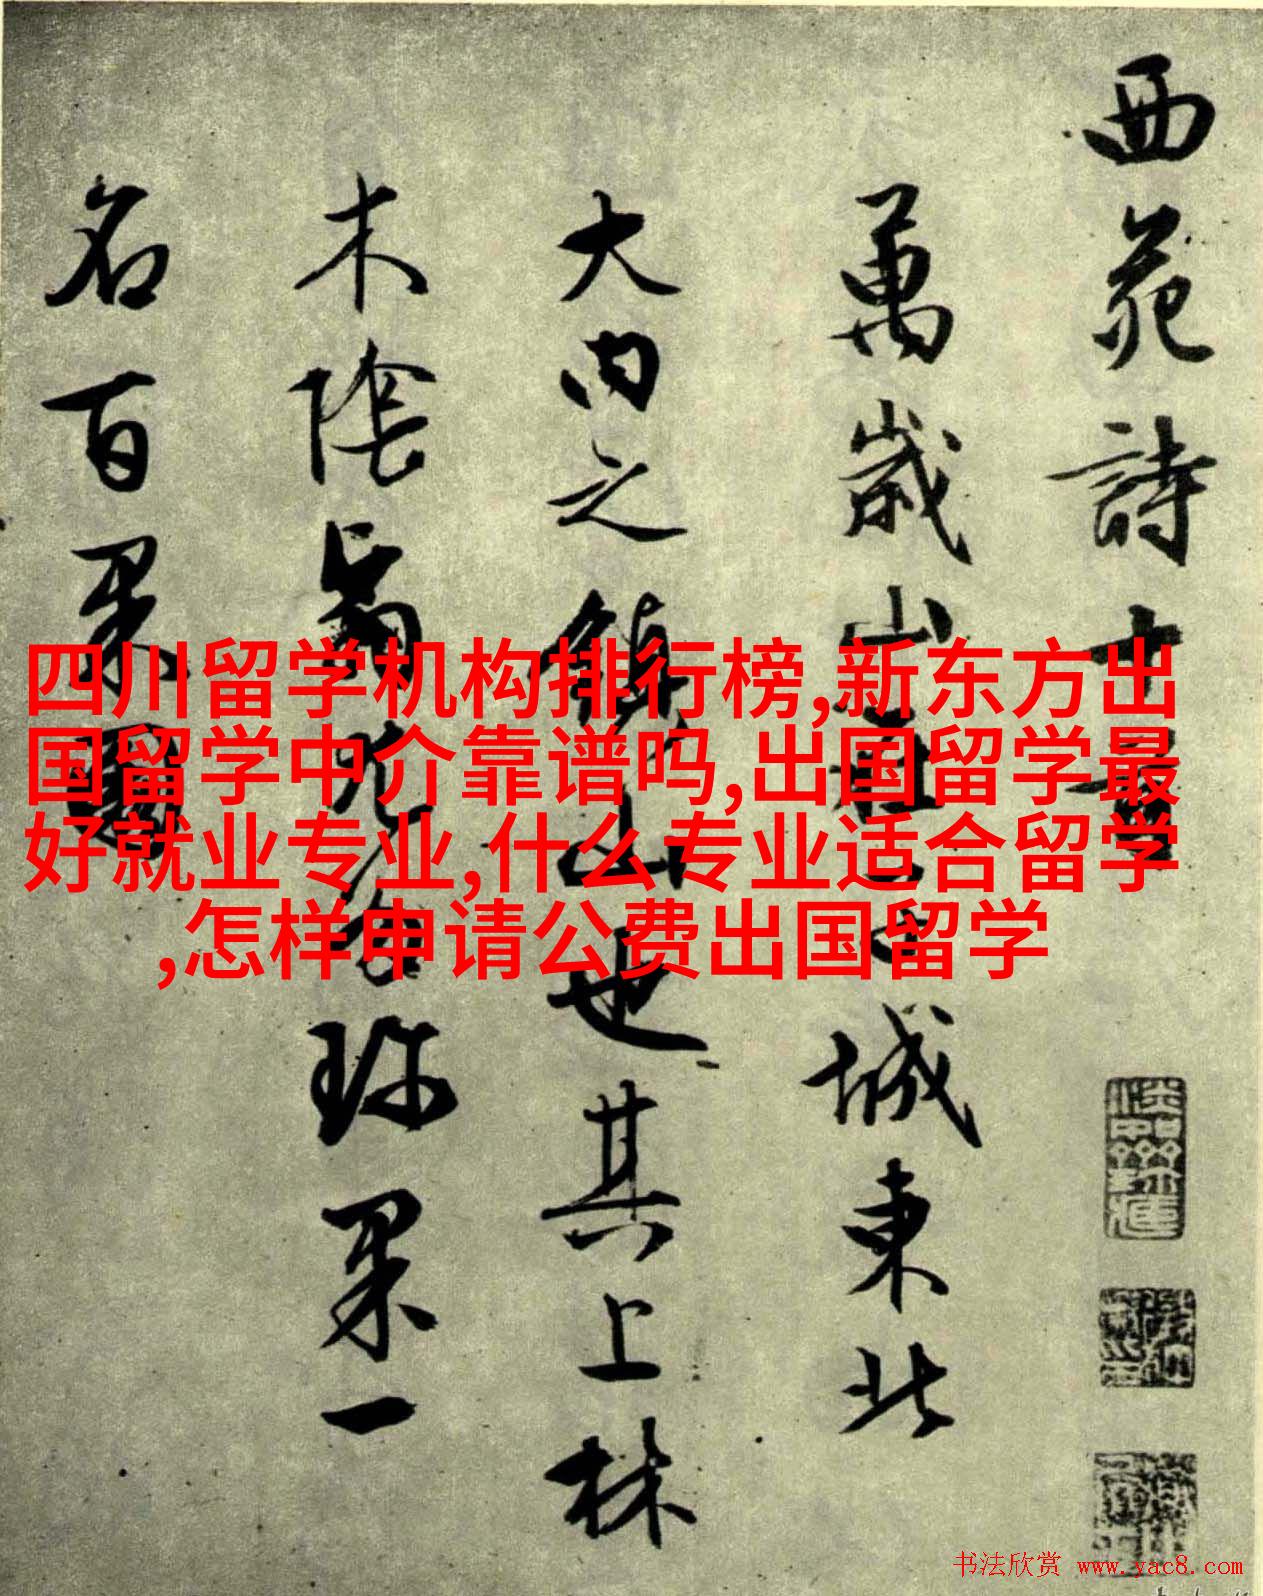 西苑詩十首
萬歲山在子城東北
大内之鎮山也其上林
木陰翳尤多珍果一
名百果園
四川留学机构排行榜,新东方出
国留学中介靠谱吗,出国留学最
好就业专业,什么专业适合留学
,怎样申请公费出国留学
书法欣赏 www.yac8.com